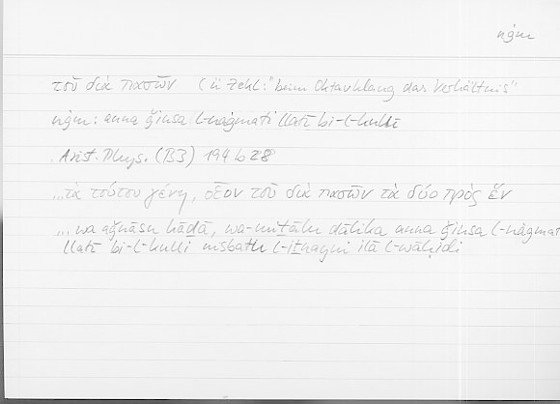 nġm
τοῦ διὰ πασῶν (ü Zekl: "beim Oktavklang das Verhältnis"
nġm: anna ǧinsa l-naġmati llatī bi-l-kulli
Arist. Phys. (B3) 194 b 28
...τὰ τούτου γένη, οἷον τοῦ διὰ πασῶν τὰ δύο πρὸς ἕν
... wa aǧnāsu hāḏā, wa-miṯālu ḏālika anna ǧinsa l-naġmati
llatī bi-l-kulli nisbatu l-iṯnayni ilā l-wāḥidi